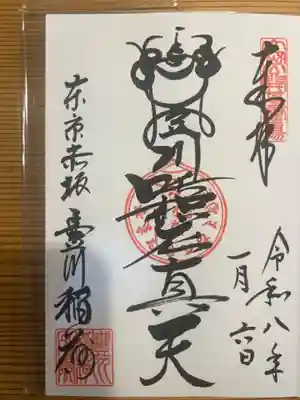 奉拝
令和八年
一月六日
豊川吒枳尼真天
東京赤坂 豊川稲荷